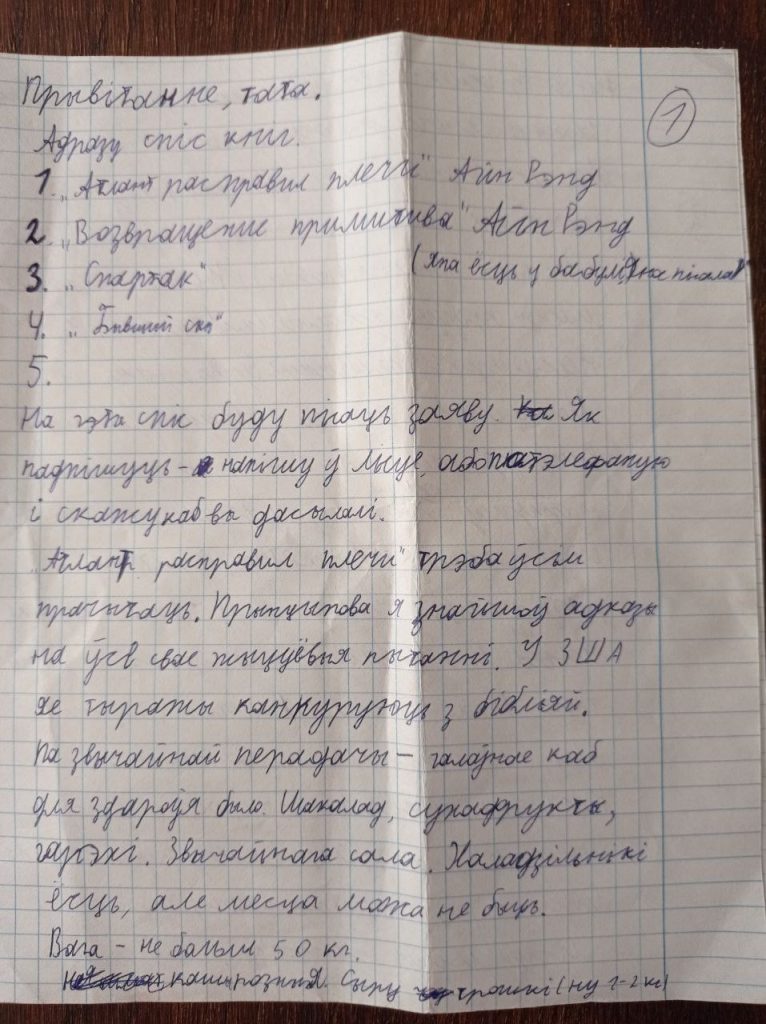 Прывітанне, тата.
1
Адразу спіс кніг.
1. „Атлант расправил плечи" Айн Рэнд
2. „Возвращение примитива" Айн Рэнд
3. „Спартак" (яна ёсць у бабулі
4. „Бывший
5.
На гэты спіс буду пісаць заяву. Як
падпішуць - напішу ў лісце, або патэлефаную
і скажу каб вы дасылалі.
„Атлант расправил плечи" трэба ўсім
прачытаць. Прынцыпова я знайшоў адказы
на ўсе свае жыццёвыя пытанні. У ЗША
яе тыражы канкуруюць з бібліяй.
Па звычайнай перадачы - галаўнае каб
для здароўя было. Шакалад, сухафрукты,
гарэхі. Звычайнага сала. Халадзільнікі
ёсць, але месца можа не быць.
Вага - не больш 50 кг.
кашы розныя. Сыру трошкі (ну 1-2 кг)